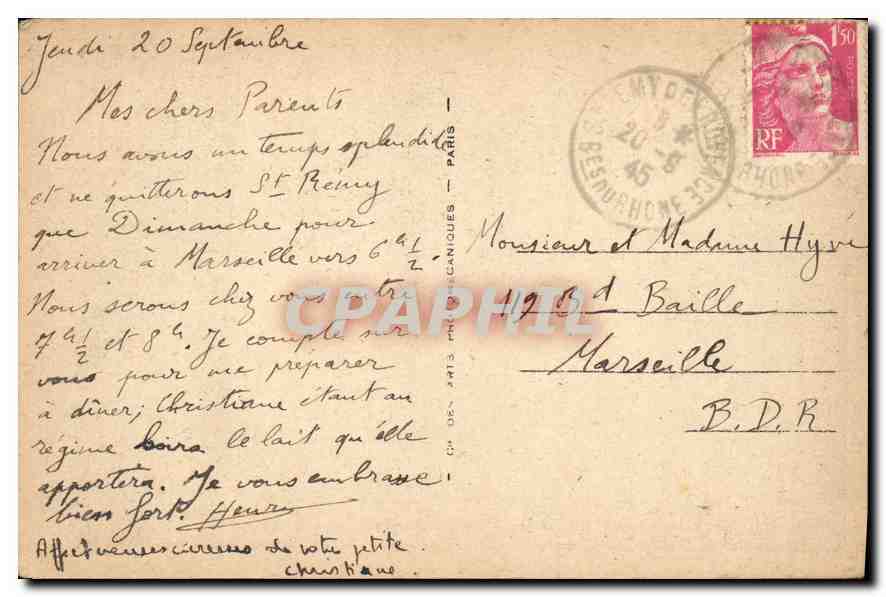 Jeudi 20 Septembre
Mes chers Parents
Nous avons un temps splendide
et ne quitterons St Rémy
que Dimanche pour
arriver à Marseille vers 6h 1/2.
Nous serons chez vous entre
7h 1/2 et 8h. Je compte sur
vous pour me préparer
à dîner; Christiane étant au
régime boira le lait qu'elle
apportera. Je vous embrasse
bien fort. Henri
de votre petite
Christiane.
PARIS
1F50
POSTES
RF
ST REMY DE PROVENCE
20-9
45
BCHES DU RHONE
Monsieur et Madame Hyvé
119 Bd Baille
Marseille
B.D.R
CPAPHIL